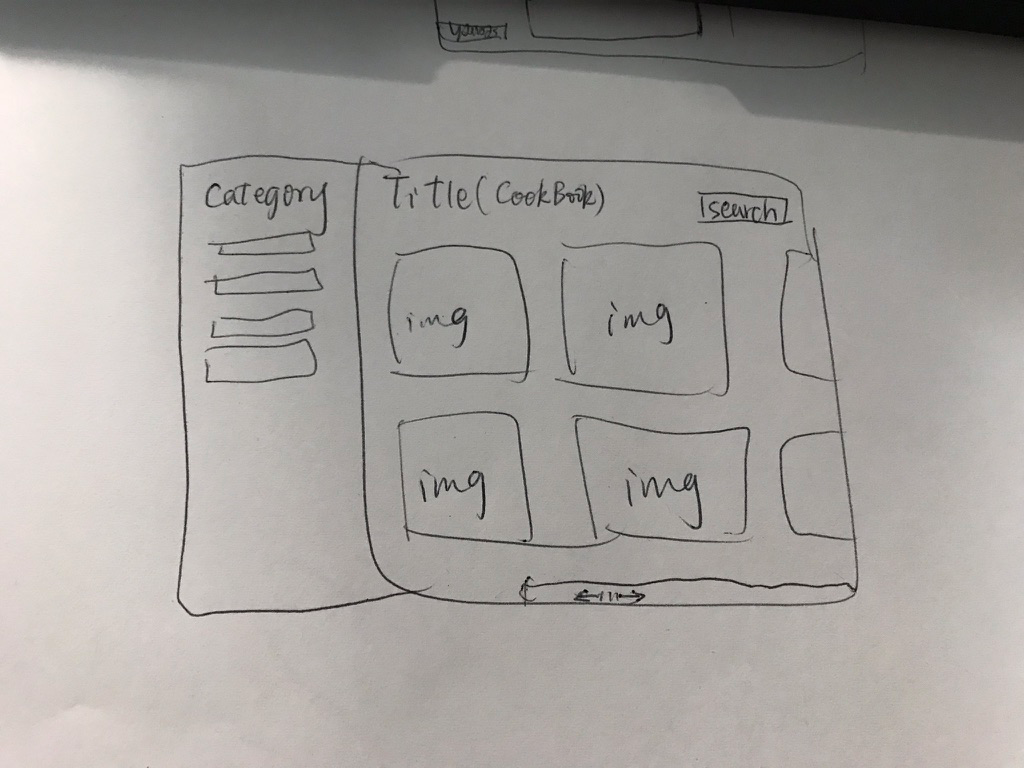 Category
Title (CookBook)
search
img
img
img
img